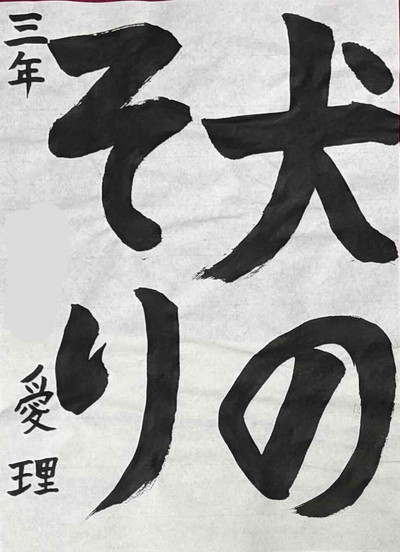 犬の
そり
三年 愛理